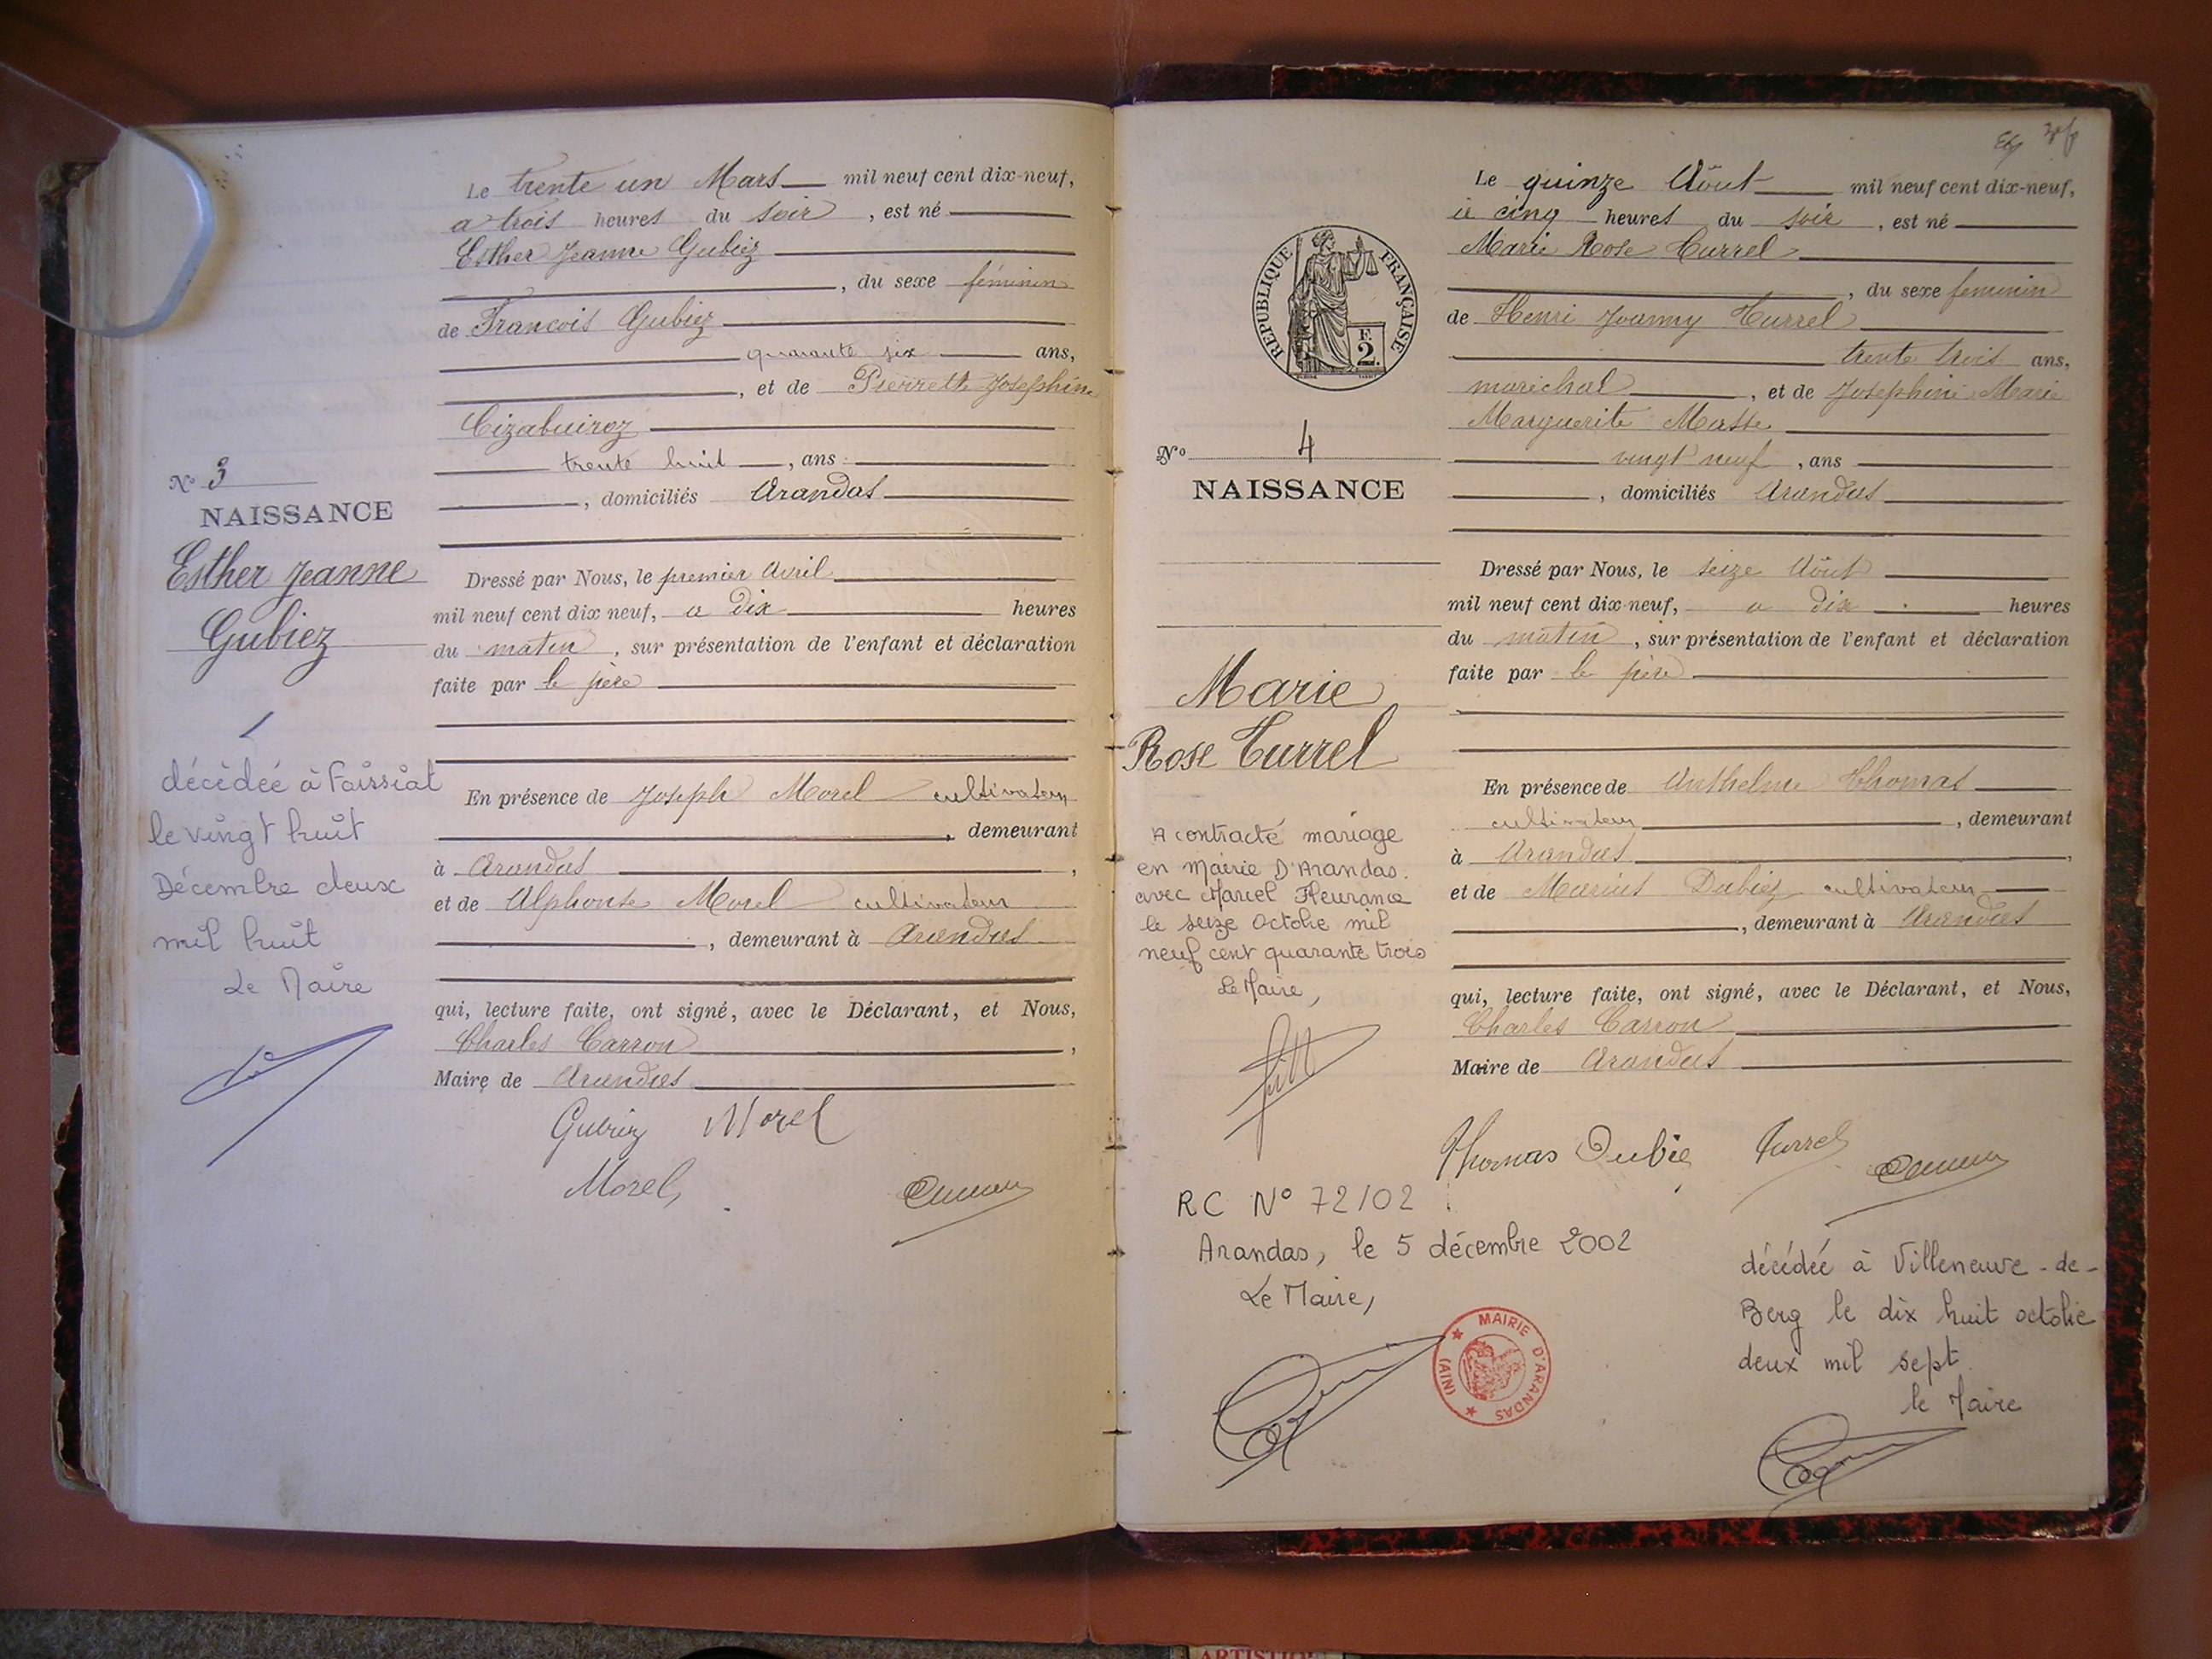 Le trente un Mars mil neuf cent dix-neuf,
a trois heures du soir, est né
Esther Jeanne Gubiez
, du sexe féminin
de Francois Gubiez
quarante six ans,
, et de Pierrette Joséphine
Cizabuiroz
trente huit, ans
, domiciliés Arandas
N° 3
NAISSANCE
Esther Jeanne
Gubiez
Dressé par Nous, le premier Avril
mil neuf cent dix neuf, a dix heures
du matin, sur présentation de l'enfant et déclaration
faite par le père
décédée à Foissiat
le vingt huit
Décembre deux
mil huit
Le Maire
En présence de Joseph Morel cultivateur
, demeurant
à Arandas,
et de Alphonse Morel cultivateur
, demeurant à Arandas
qui, lecture faite, ont signé, avec le Déclarant, et Nous,
Charles Carron,
Maire de Arandas
Gubiez Morel
Morel,
Le quinze Août mil neuf cent dix-neuf,
à cinq heures du soir, est né
Marie Rose Turrel
, du sexe feminin
de Henri Joanny Turrel
trente trois ans,
maréchal, et de Josephine Marie
Marguerite Masse
vingt neuf, ans
, domiciliés Arandas
RÉPUBLIQUE FRANÇAISE
F.
2.
N° 4
NAISSANCE
Marie
Rose Turrel
Dressé par Nous, le seize Août
mil neuf cent dix-neuf, a dix heures
du matin, sur présentation de l'enfant et déclaration
faite par le père
A contracté mariage
en Mairie D'Arandas.
avec Marcel Fleurance
le seize Octobre mil
neuf cent quarante trois
Le Maire,
En présence de Anthelme Thomas
cultivateur, demeurant
à Arandas,
et de Marius Dubiez cultivateur
, demeurant à Arandas
qui, lecture faite, ont signé, avec le Déclarant, et Nous,
Charles Carron
Maire de Arandas
Thomas Dubie Turrel
RC N° 72/02
Arandas, le 5 décembre 2002
Le Maire,
MAIRIE D'ARANDAS
(AIN)
décédée à Villeneuve-de-
Berg le dix huit octobre
deux mil sept
le Maire
ARTISTIQU